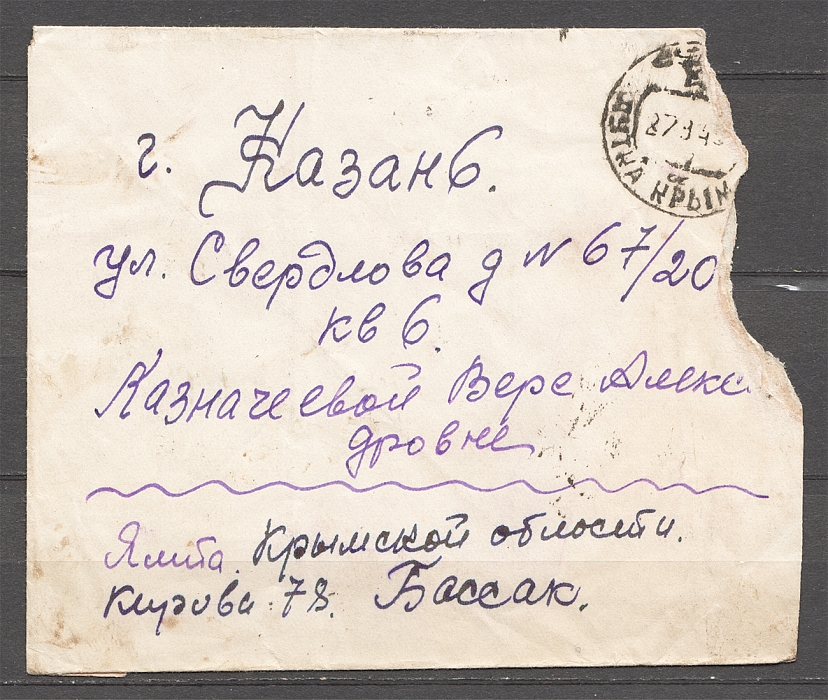 г. Казань.
ул. Свердлова д № 67/20
кв 6.
Казначеевой Вере Алекс
дровне
Ялта. Крымской области.
Кирова 78. Бассак.
ЯЛТА КРЫМ